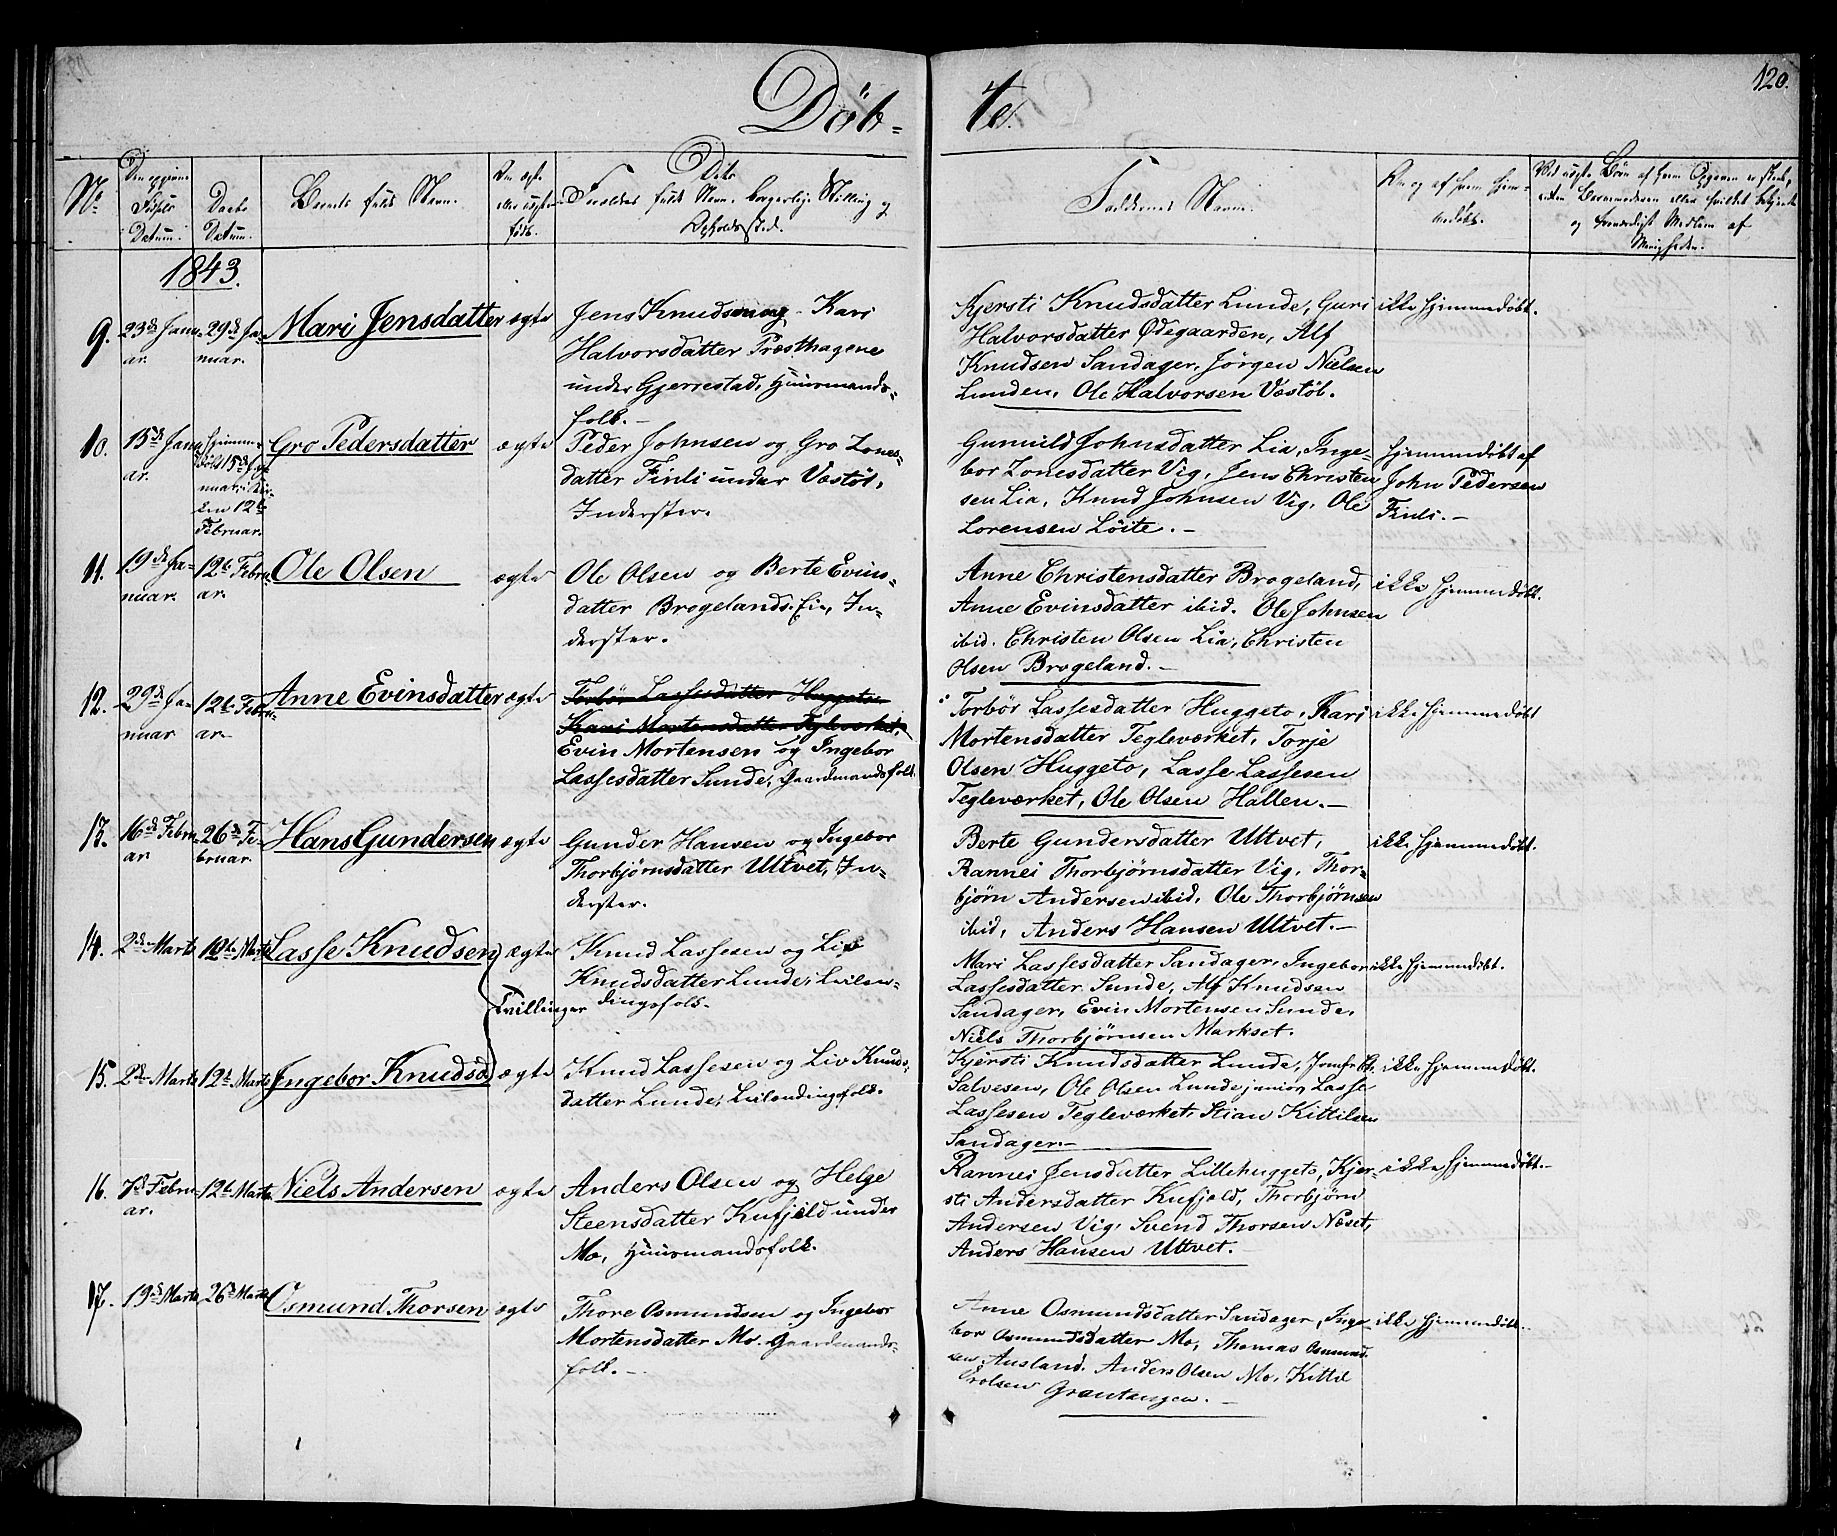 120.
Döb- te.
No.
Datum.
Daabs Datum.
Barnets fulde Navn.
Om ægte eller uægte født.
Dito
Forældres fulde Navn, borgerlige Stilling og
Opholdssted.
Faddernes Navne.
Om og af hvem hjem-
medøbt.
1843.
9. 23de Janu-
ar.
29de Ja-
nuar.
Mari Jensdatter
ægte
Jens Knudsen og Kari
Halvorsdatter Præsthagene
under Gjerrestad, Huusmands-
folk.
Kjersti Knudsdatter Lunde, Guri
Halvorsdatter Ødegaarden, Alf
Knudsen Sandager, Jörgen Nielsen
Lunden, Ole Halvorsen Væstöl.
ikke hjemmedöbt.
10. 15de Janu-
ar.
hjemme-
döbt 15de Ja-
nuar, i Kir-
ken 12te
Februar.
Gro Pedersdatter
ægte
Peder Johnsen og Gro Zones-
datter Finli under Væstöl,
Inderster.
Gunuld Johnsdatter Lia, Inge-
bor Zonesdatter Vig, Jens Christen-
sen Lia, Knud Johnsen Vig, Ole
Lorensen Löite.-
hjemmedöbt af
John Pedersen
Finli.-
11. 19de Ja-
nuar.
12te Febru-
ar.
Ole Olsen
ægte
Ole Olsen og Berte Evins-
datter Brogelands-Eie, In-
derster.
Anne Christensdatter Brogeland,
Anne Evinsdatter ibid. Ole Johnsen
ibid. Christen Olsen Lia, Christen
Olsen Brogeland.-
ikke hjemmedöbt.
12. 29de Ja-
nuar
12te Febru-
ar.
Anne Evinsdatter
ægte
Torbör Lassesdatter Huggeto
Kari Mortensdatter Tegleværket,
Evin Mortensen og Ingebor
Lassesdatter Sunde, Gaardmandsfolk.
Torbör Lassesdatter Huggeto, Kari
Mortensdatter Tegleværket, Torje
Olsen Huggeto, Lasse Lassesen
Tegleværket, Ole Olsen Hallen.-
ikke hjemmedöbt
13. 16de Febru-
ar
26de Fe-
bruar.
Hans Gundersen
ægte
Gunder Hansen og Ingebor
Thorbjørnsdatter Ultvet, In-
derster.
Berte Gundersdatter Ultvet,
Rannei Thorbjørnsdatter Vig, Thor-
bjørn Andersen ibid, Ole Thorbjørnsen
ibid, Anders Hansen Ultvet.-
ikke hjemmedöbt.
14. 2de Marts
12te Marts
Lasse Knudsen
ægte
Knud Lassesen og Liv
Knudsdatter Lunde, Leilen-
dingsfolk.
Tvillinger
Mari Lassesdatter Sandager, Ingebor
Lassesdatter Sunde, Alf Knudsen
Sandager, Evin Mortensen Sunde,
Niels Thorbjørnsen Markset.
ikke hjemmedöbt.
15. 2de Marts
12te Marts
Ingebor Knudsd.
ægte
Knud Lassesen og Liv Knuds-
datter Lunde, Leilendingsfolk.
Kjersti Knudsdatter Lunde, Jomfru
Salvesen, Ole Olsen Lunde junior, Lasse
Lassesen Tegleværket, Stian Kittilsen
Sandager.-
ikke hjemmedöbt.
16. 7de Febru-
ar.
12te Marts
Niels Andersen
ægte
Anders Olsen og Helge
Steensdatter Kufjeld under
Mo, Huusmandsfolk.
Rannei Jensdatter Lillehuggeto, Kjer-
sti Andersdatter Kufjeld, Thorbjørn
Andersen Vig, Svend Thorsen Næset,
Anders Hansen Ultvet.-
ikke hjemmedöbt.-
17. 19de Marts
26de Marts
Osmund Thorsen
ægte
Thore Osmundsen og Ingebor
Mortensdatter Mo, Gaardmands-
folk.-
Anne Osmundsdatter Sandager, Inge-
bor Osmundsdatter Mo, Thomas Osmund-
sen Ausland, Anders Olsen Mo, Kittil
Erolsen Grantangen.-
ikke hjemmedöbt.